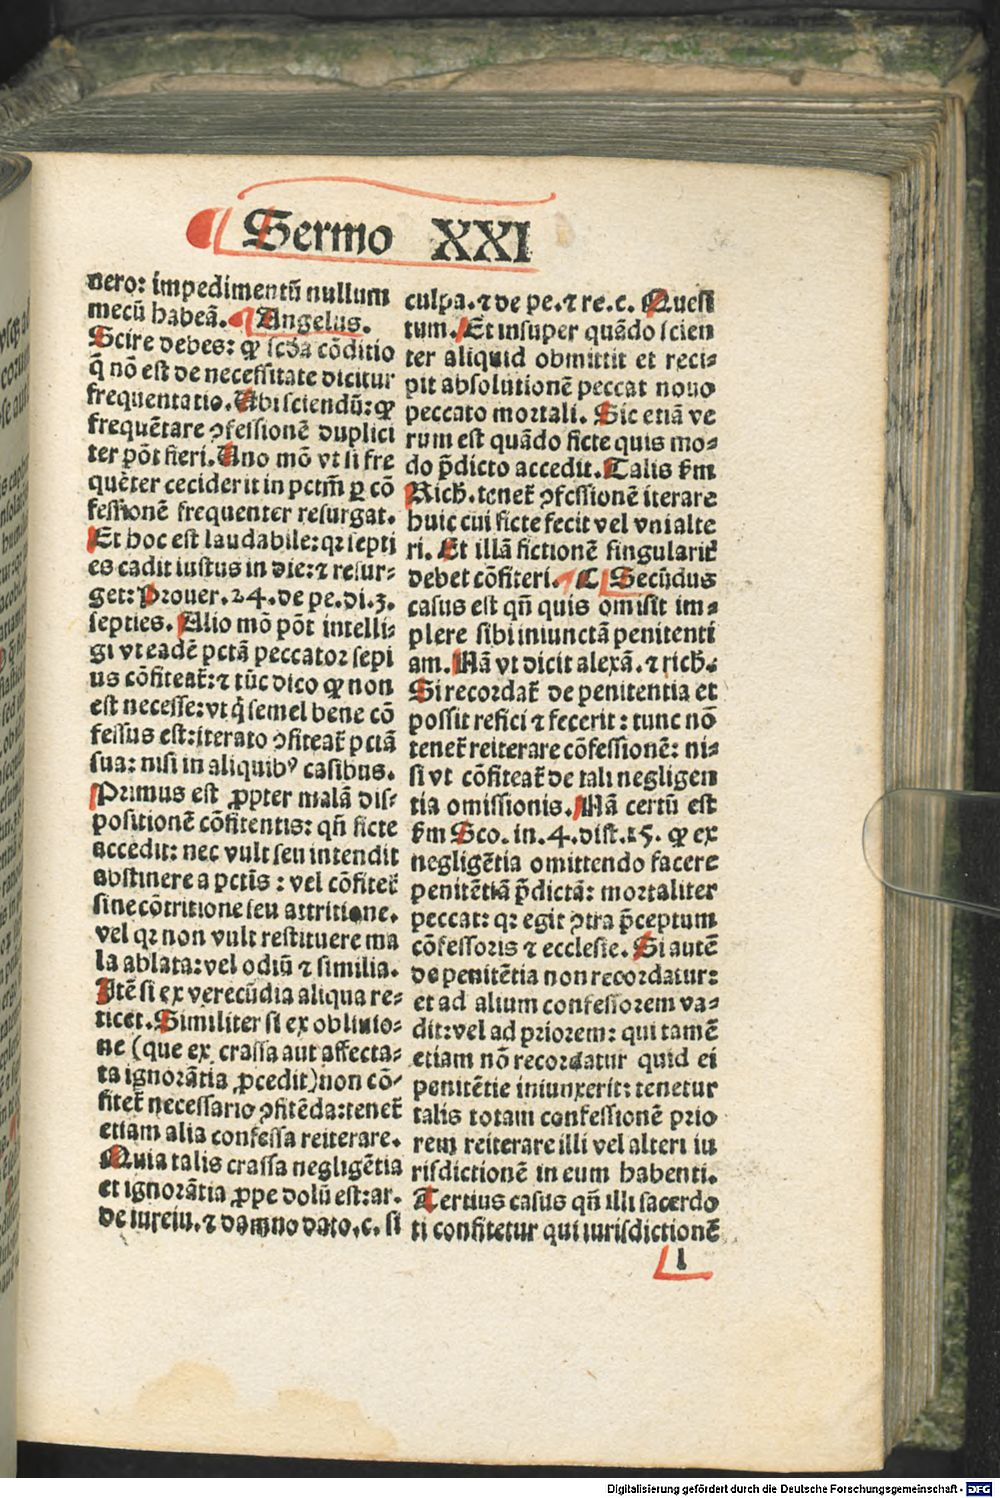 Sermo XXI
vero: impedimentū nullum
mecū habeā. Angelus.
Scire debes: ꝙ scďa cōditio
q̄ nō est de necessitate dicitur
frequentatio. Ubi sciendū: ꝙ
frequētare ꝯfessionē duplici
ter pōt fieri. Uno mō vt si fre
quēter ceciderit in pctm̄ ꝑ cō
fessionē frequenter resurgat.
Et hoc est laudabile: qꝛ septi
es cadit iustus in die: ⁊ resur⸗
get: Prouer. 24. de pe. di. 3.
septies. Alio mō pōt intelli⸗
gi vt eadē pctā peccator sepi
us cōfiteat᷑: ⁊ tūc dico ꝙ non
est necesse: vt q̇ semel bene cō
fessus est: iterato ꝯfiteat᷑ pctā
sua: nisi in aliquibꝰ casibus.
Primus est ꝓpter malā dis⸗
positionē cōfitentis: qn̄ ficte
accedit: nec vult seu intendit
abstinere a pctīs: vel cōfitet᷑
sine cōtritione seu attritione.
vel qꝛ non vult restituere ma
la ablata: vel odiū ⁊ similia.
Itē si ex verecūdia aliqua re⸗
ticet. Similiter si ex obliuio⸗
ne (que ex crassa aut affecta⸗
ta ignorātia ꝓcedit) non cō⸗
fitet᷑ necessario ꝯfitēda: tenet᷑
etiam alia confessa reiterare.
Quia talis crassa negligētia
et ignorātia ꝓpe dolū est: ar.
de iureiu. ⁊ damno dato. c. si
culpa. ⁊ de pe. ⁊ re. c. Quesi
tum. Et insuper quādo scien
ter aliquid obmittit et reci⸗
pit absolutionē peccat nouo
peccato mortali. Sic etiā ve
rum est quādo ficte quis mo⸗
do p̄dicto accedit. Talis ẜm
Rich. tenet᷑ ꝯfessionē iterare
huic cui ficte fecit vel vni alte
ri. Et illā fictionē singularit᷑
debet cōfiteri. ¶ Secūdus
casus est qn̄ quis omisit im⸗
plere sibi iniunctā penitenti
am. Nā vt dicit alexā. ⁊ rich.
Si recordat᷑ de penitentia et
possit refici ⁊ fecerit: tunc nō
tenet᷑ reiterare cōfessionē: ni⸗
si vt cōfiteat᷑ de tali negligen
tia omissionis. Nā certū est
ẜm Sco. in. 4. dist. 15. ꝙ ex
negligētia omittendo facere
penitētiā p̄dictā: mortaliter
peccat: qꝛ egit ꝯtra p̄ceptum
cōfessoris ⁊ ecclesie. Si autē
de penitētia non recordatur:
et ad alium confessorem va⸗
dit: vel ad priorem: qui tamē
etiam nō recordatur quid ei
penitētie iniunxerit: tenetur
talis totam confessionē prio
rem reiterare illi vel alteri iu
risdictionē in eum habenti.
Tertius casus qn̄ illi sacerdo
ti confitetur qui iurisdictionē
l
Digitalisierung gefördert durch die Deutsche Forschungsgemeinschaft - DFG